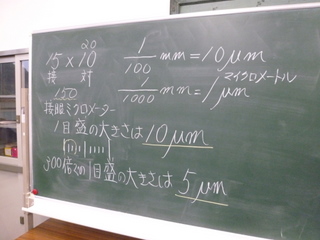 20
15 × 10
接 対
150
1/100 mm = 10μm
マイクロメートル
1/1000 mm = 1μm
接眼ミクロメーター
1目盛の大きさは 10μm
300倍 1目盛の大きさは 5μm